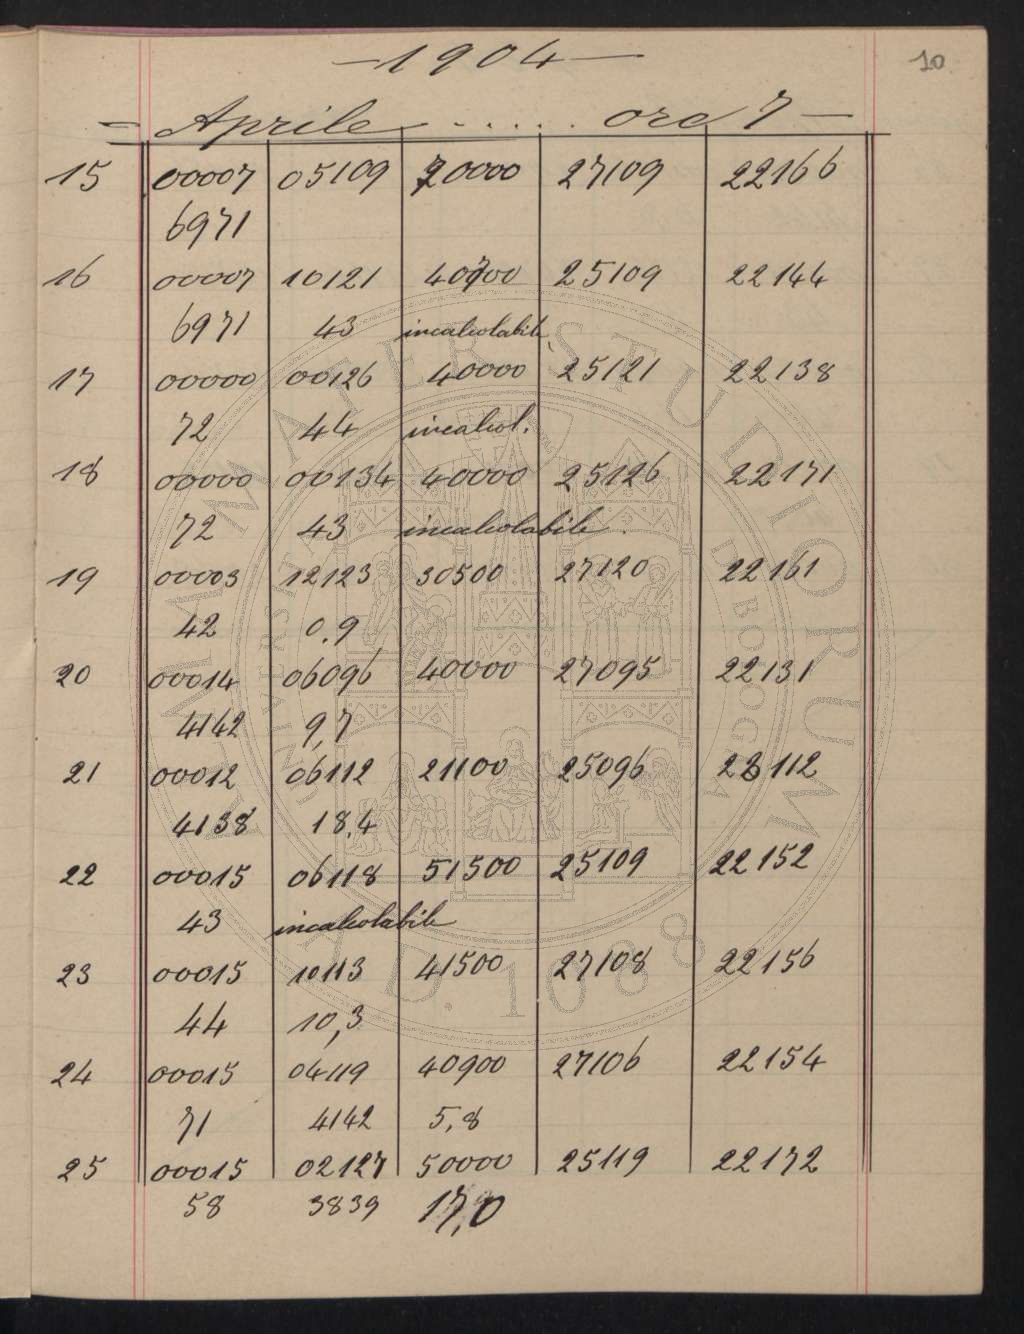 10
— 1904 —
= Aprile . . . . . ore 7 —
15 00007 05109 20000 27109 22166
6971
16 00007 10121 40700 25109 22144
6971 43 incalcolabile
17 00000 00126 40000 25121 22138
72 44 incalcol.
18 00000 00134 40000 25126 22171
72 43 incalcolabile.
19 00003 12123 30500 27120 22161
42 0,9
20 00014 06096 40000 27095 22131
4142 9,7
21 00012 06112 21100 25096 22112
4138 18,4
22 00015 06118 51500 25109 22152
43 incalcolabile
23 00015 10113 41500 27108 22156
44 10,3
24 00015 04119 40900 27106 22154
71 4142 5,8
25 00015 02127 50000 25119 22172
58 3839 17,0
ALMA MATER STUDIORUM
UNIVERSITÀ DI BOLOGNA
A.D. 1088